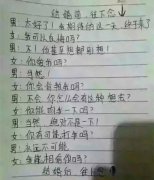 结婚前，往下念
男：太好了！我期待的这一天，终于来了
女：我可以反悔吗？
男：不！你甚至想都别想！
女：你爱我吗？
男：当然！
女：你会背叛我吗？
男：不会，你怎么会有这种想法？
女：你能吻我一下吗？
男：当然，绝对不是一下！
女：你有可能打我吗？
男：永远不可能
女：我能相信你吗？
结婚后，往上念